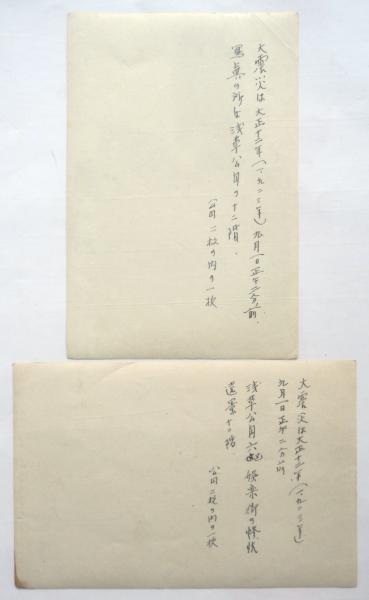 大震災は大正十二年(一九二三年)九月一日正午二分前、
写真の所は浅草公园の十二階、
公园二枚の内の一枚
大震災は大正十二年(一九二三年)
九月一日正午二分前
浅草公园六区娯楽街の惨状
遠景十二階、
公园二枚の内の一枚